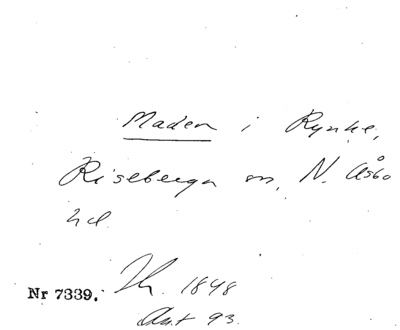 Maden i Rynke,
Riseberga sn, N. Åsbo
hd
Nr 7339. Th. 1848
Ant 93.